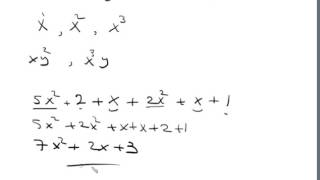 x , x² , x³
xy² , x³y
5x² + 2 + x + 2x² + x + 1
5x² + 2x² + x + x + 2 + 1
7x² + 2x + 3